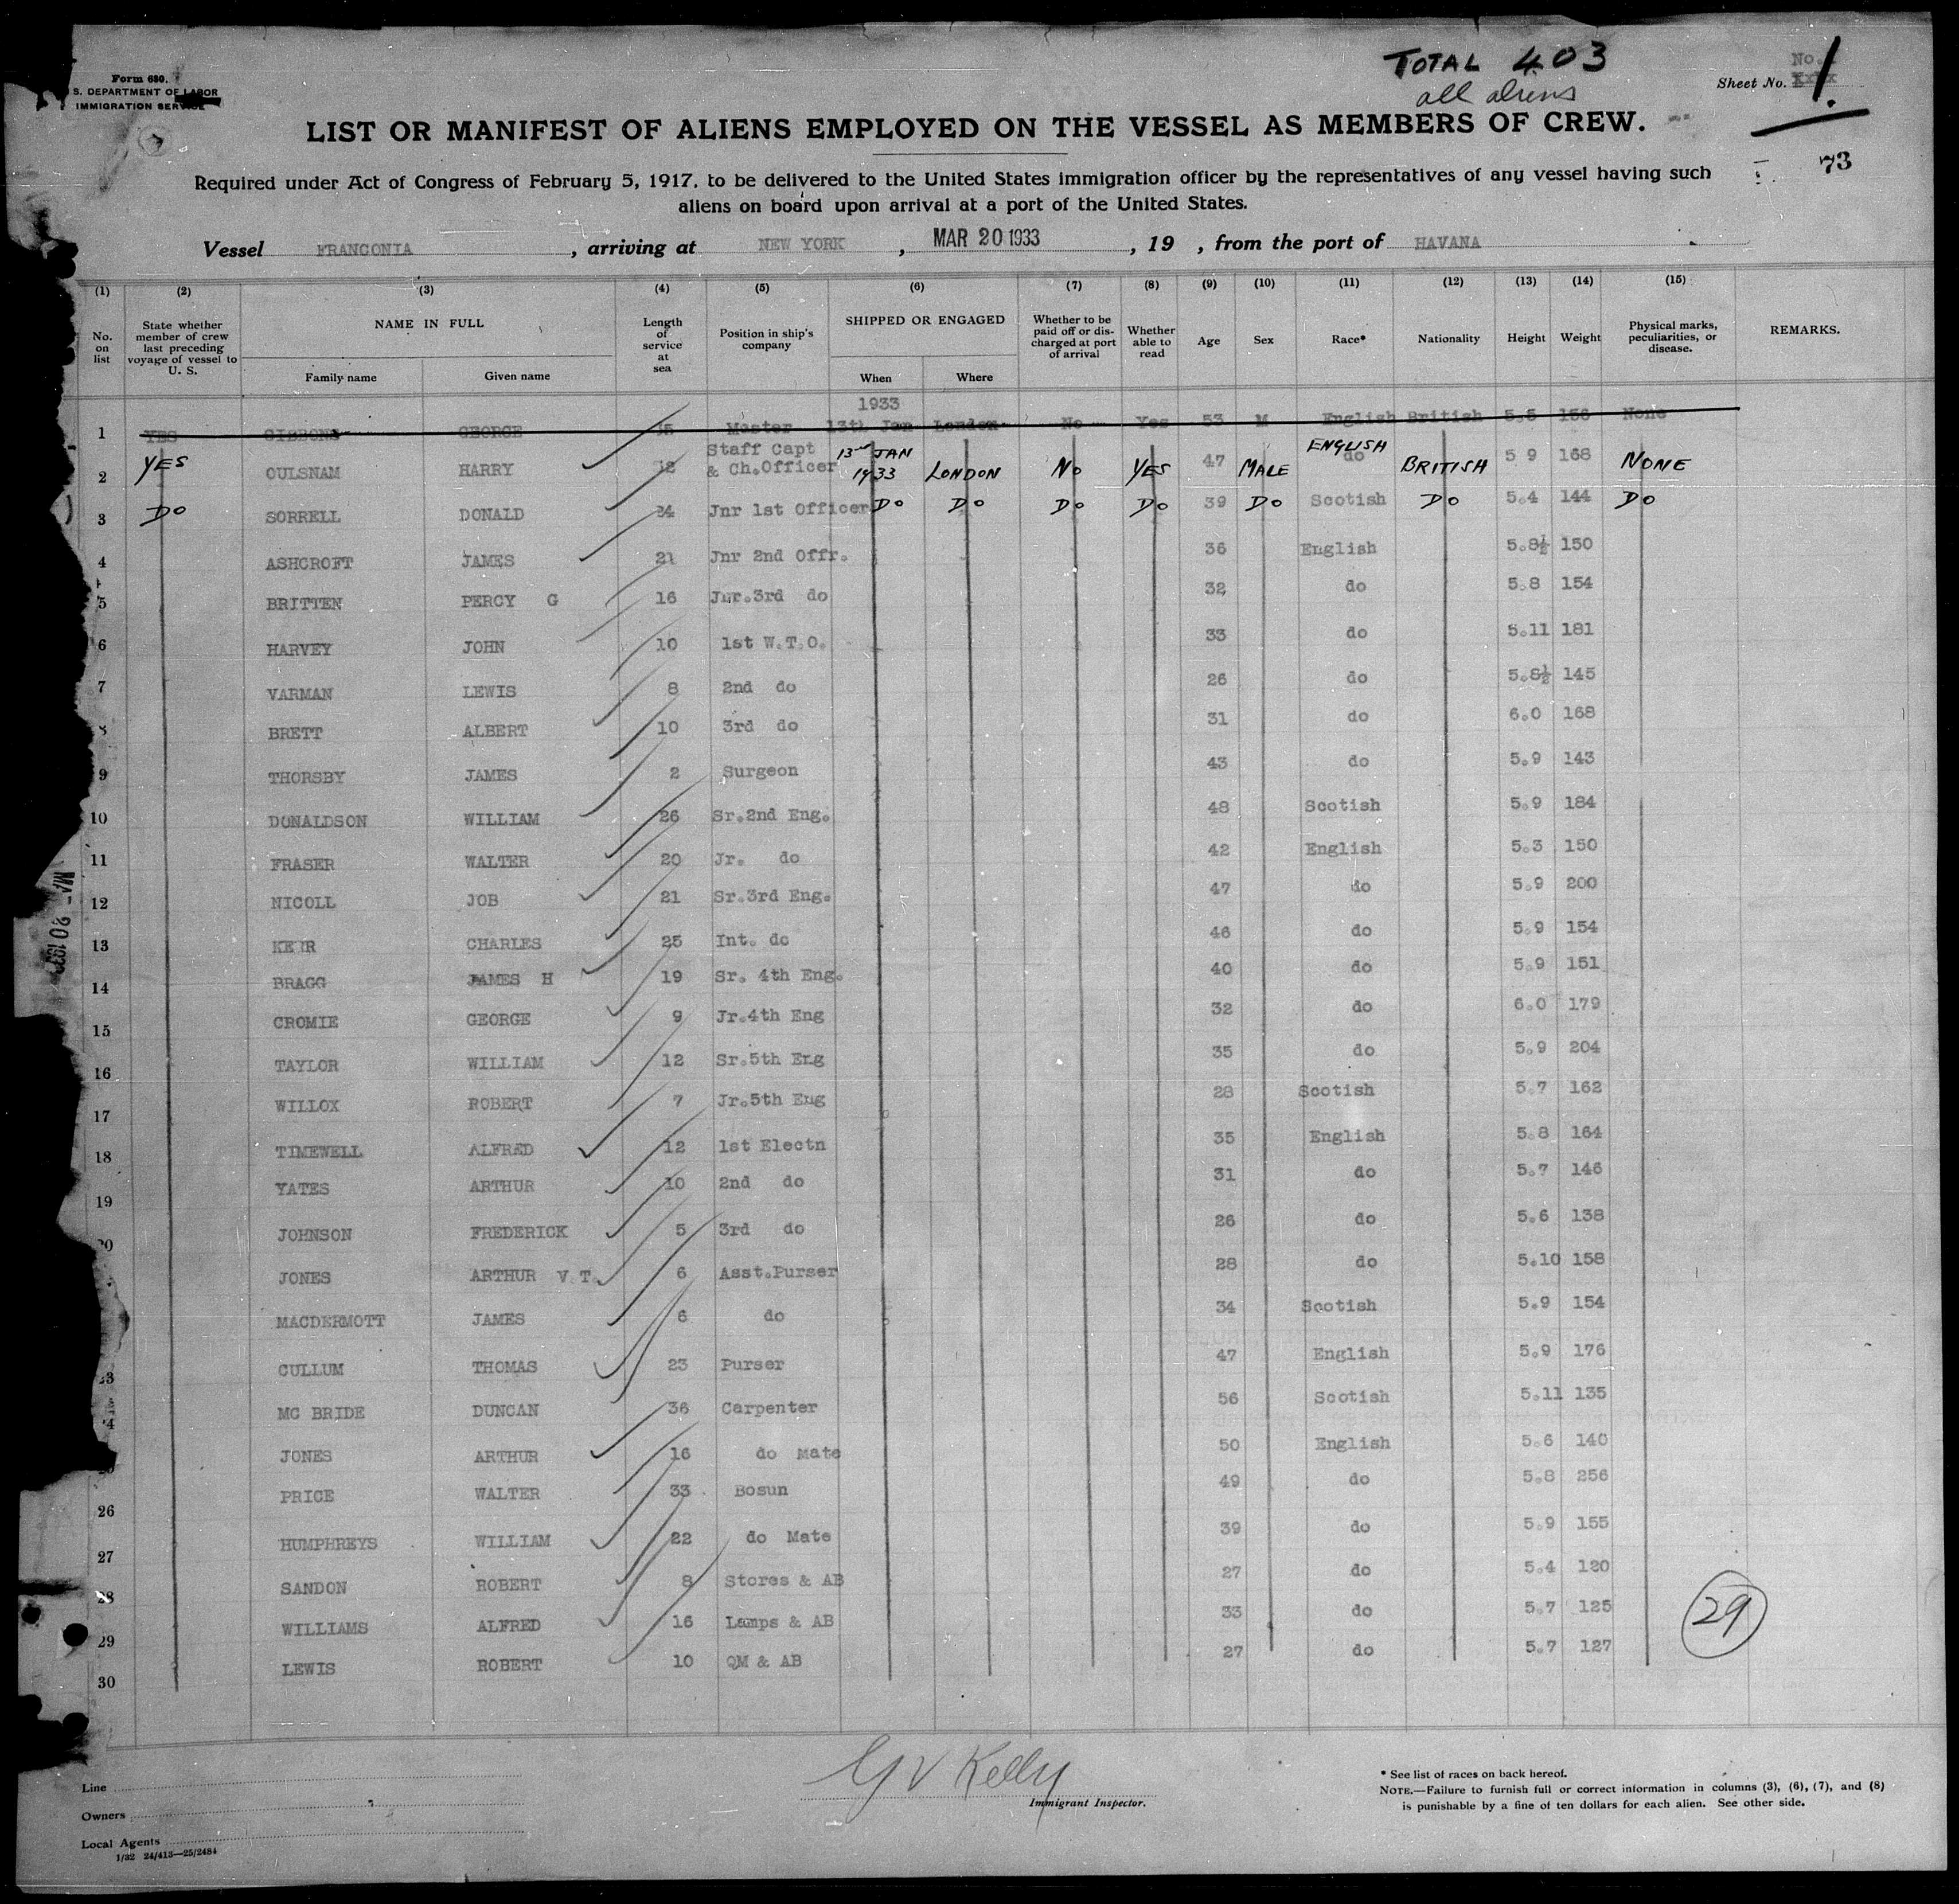 TOTAL 403
all aliens
Form 680.
S. DEPARTMENT OF LABOR
IMMIGRATION SERVICE
No.
Sheet No. 1.
LIST OR MANIFEST OF ALIENS EMPLOYED ON THE VESSEL AS MEMBERS OF CREW.
73
Required under Act of Congress of February 5, 1917, to be delivered to the United States immigration officer by the representatives of any vessel having such
aliens on board upon arrival at a port of the United States.
Vessel FRANCONIA, arriving at NEW YORK, MAR 20 1933, 19 , from the port of HAVANA
(1) (2) (3) (4) (5) (6) (7) (8) (9) (10) (11) (12) (13) (14) (15)
No. on list State whether member of crew last preceding voyage of vessel to U. S. NAME IN FULL Family name Given name Length of service at sea Position in ship's company SHIPPED OR ENGAGED When Where Whether to be paid off or discharged at port of arrival Whether able to read Age Sex Race* Nationality Height Weight Physical marks, peculiarities, or disease. REMARKS.
1933
1 YES GIBBONS GEORGE Master 13th Jan London No Yes 53 M English British 5.5 156 None
2 YES OULSNAM HARRY Staff Capt & Ch.Officer 13th JAN 1933 LONDON No YES 47 MALE ENGLISH do BRITISH 5 9 168 NONE
3 Do SORRELL DONALD 24 Jnr 1st Officer Do Do Do Do 39 Do Scotish Do 5.4 144 Do
4 ASHCROFT JAMES 21 Jnr 2nd Offr. 36 English 5.8½ 150
5 BRITTEN PERCY G 16 Jnr.3rd do 32 do 5.8 154
6 HARVEY JOHN 10 1st W.T.O. 33 do 5.11 181
7 VARMAN LEWIS 8 2nd do 26 do 5.8½ 145
8 BRETT ALBERT 10 3rd do 31 do 6.0 168
9 THORSBY JAMES 2 Surgeon 43 do 5.9 143
10 DONALDSON WILLIAM 26 Sr.2nd Eng. 48 Scotish 5.9 184
11 FRASER WALTER 20 Jr. do 42 English 5.3 150
12 NICOLL JOB 21 Sr.3rd Eng. 47 do 5.9 200
13 KEIR CHARLES 25 Int. do 46 do 5.9 154
14 BRAGG JAMES H 19 Sr. 4th Eng. 40 do 5.9 151
15 CROMIE GEORGE 9 Jr.4th Eng 32 do 6.0 179
16 TAYLOR WILLIAM 12 Sr.5th Eng 35 do 5.9 204
17 WILLOX ROBERT 7 Jr.5th Eng 28 Scotish 5.7 162
18 TIMEWELL ALFRED 12 1st Electn 35 English 5.8 164
19 YATES ARTHUR 10 2nd do 31 do 5.7 146
20 JOHNSON FREDERICK 5 3rd do 26 do 5.6 138
JONES ARTHUR V T. 6 Asst.Purser 28 do 5.10 158
MACDERMOTT JAMES 6 do 34 Scotish 5.9 154
23 CULLUM THOMAS 23 Purser 47 English 5.9 176
24 MC BRIDE DUNCAN 36 Carpenter 56 Scotish 5.11 135
JONES ARTHUR 16 do Mate 50 English 5.6 140
26 PRICE WALTER 33 Bosun 49 do 5.8 256
27 HUMPHREYS WILLIAM 22 do Mate 39 do 5.9 155
28 SANDON ROBERT 8 Stores & AB 27 do 5.4 120
29 WILLIAMS ALFRED 16 Lamps & AB 33 do 5.7 125
30 LEWIS ROBERT 10 QM & AB 27 do 5.7 127
29
MAR 20 1933
G V Kelly
Immigrant Inspector.
Line
Owners
Local Agents
1/32 24/413—25/2484
* See list of races on back hereof.
NOTE.—Failure to furnish full or correct information in columns (3), (6), (7), and (8)
is punishable by a fine of ten dollars for each alien. See other side.